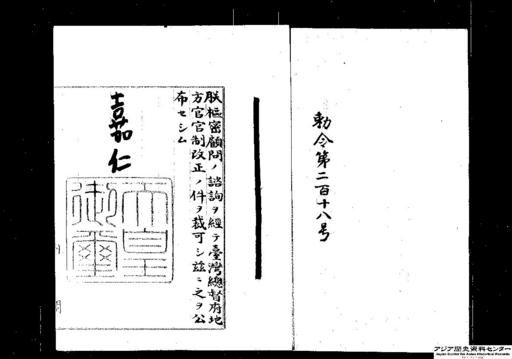 勅令第二百十八号
朕樞密顧問ノ諮詢ヲ經テ臺灣總督府地
方官官制改正ノ件ヲ裁可シ茲ニ之ヲ公
布セシム
嘉仁
天皇
御璽
アジア歴史資料センター
Japan Center for Asian Historical Records